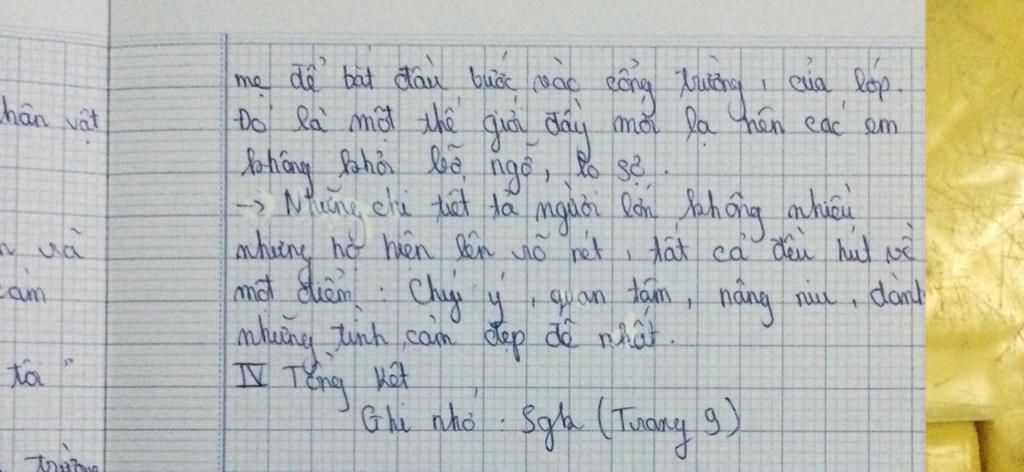 mẹ để bắt đầu bước vào cổng trường, của lớp.
Đó là một thế giới đầy mới lạ nên các em
không khỏi bỡ ngỡ, lo sợ.
-> Những chi tiết tả người lớn không nhiều
nhưng họ hiện lên rõ nét, tất cả đều hút về
một điểm: Chú ý, quan tâm, nâng niu, dành
những tình cảm đẹp đẽ nhất.
IV Tổng kết
Ghi nhớ: Sgk (Trang 9)
hân vật
n và
cảm
tôi"
trường